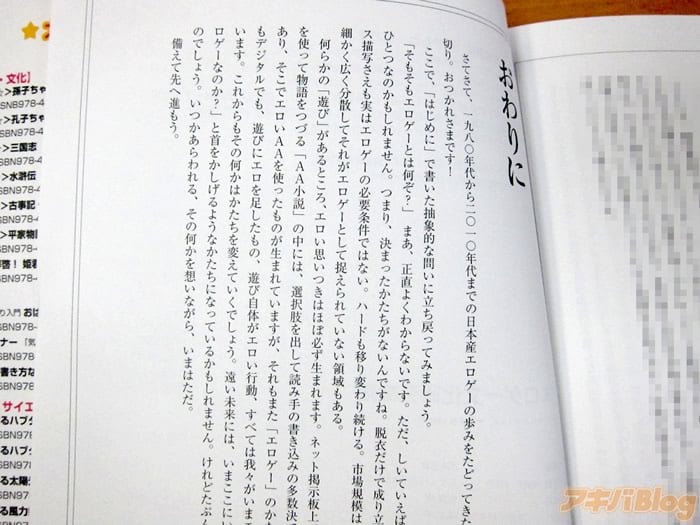 おわりに
さてさて、一九八〇年代から二〇一〇年代までの日本産エロゲーの歩みをたどってきた
切り。おつかれさまです！
ここで、「はじめに」で書いた抽象的な問いに立ち戻ってみましょう。
「そもそもエロゲーとは何ぞ？」 まあ、正直よくわからないです。ただ、しいていえば
ひとつなのかもしれません。つまり、決まったかたちがないんですね。脱衣だけで成り立
ス描写さえも実はエロゲーの必要条件ではない。ハードも移り変わり続ける。市場規模は
細かく広く分散してそれがエロゲーとして捉えられていない領域もある。
何らかの「遊び」があるところ、エロい思いつきはほぼ必ず生まれます。ネット掲示板上
を使って物語をつづる「AA小説」の中には、選択肢を出して読み手の書き込みの多数決
あり、そこでエロいAAを使ったものが生まれていますが、それもまた「エロゲー」のか
もデジタルでも、遊びにエロを足したもの、遊び自体がエロい行動、すべては我々がいま
います。これからもその何かはかたちを変えていくでしょう。遠い未来には、いまここにい
ロゲーなのか？」と首をかしげるようなかたちになっているかもしれません。けれどたぶん
のでしょう。いつかあらわれる、その何かを想いながら、いまはただ。
備えて先へ進もう。
・文化】
>孫子ちゃ
ISBN978-4
>孔子ちゃ
ISBN978-4
>三国志
ISBN978-4
>水滸伝
ISBN978-4
>古事記
ISBN978-4
>平家物
ISBN978-4
啓！ 姫君
ISBN978-4
の入門 おは
ISBN978-4
ナー 「気
ISBN978-4
書き方な
ISBN978-4
サイエ
るハブタ
ISBN978
るハブ
ISBN978
る太陽
ISBN978
る風力
アキバBlog